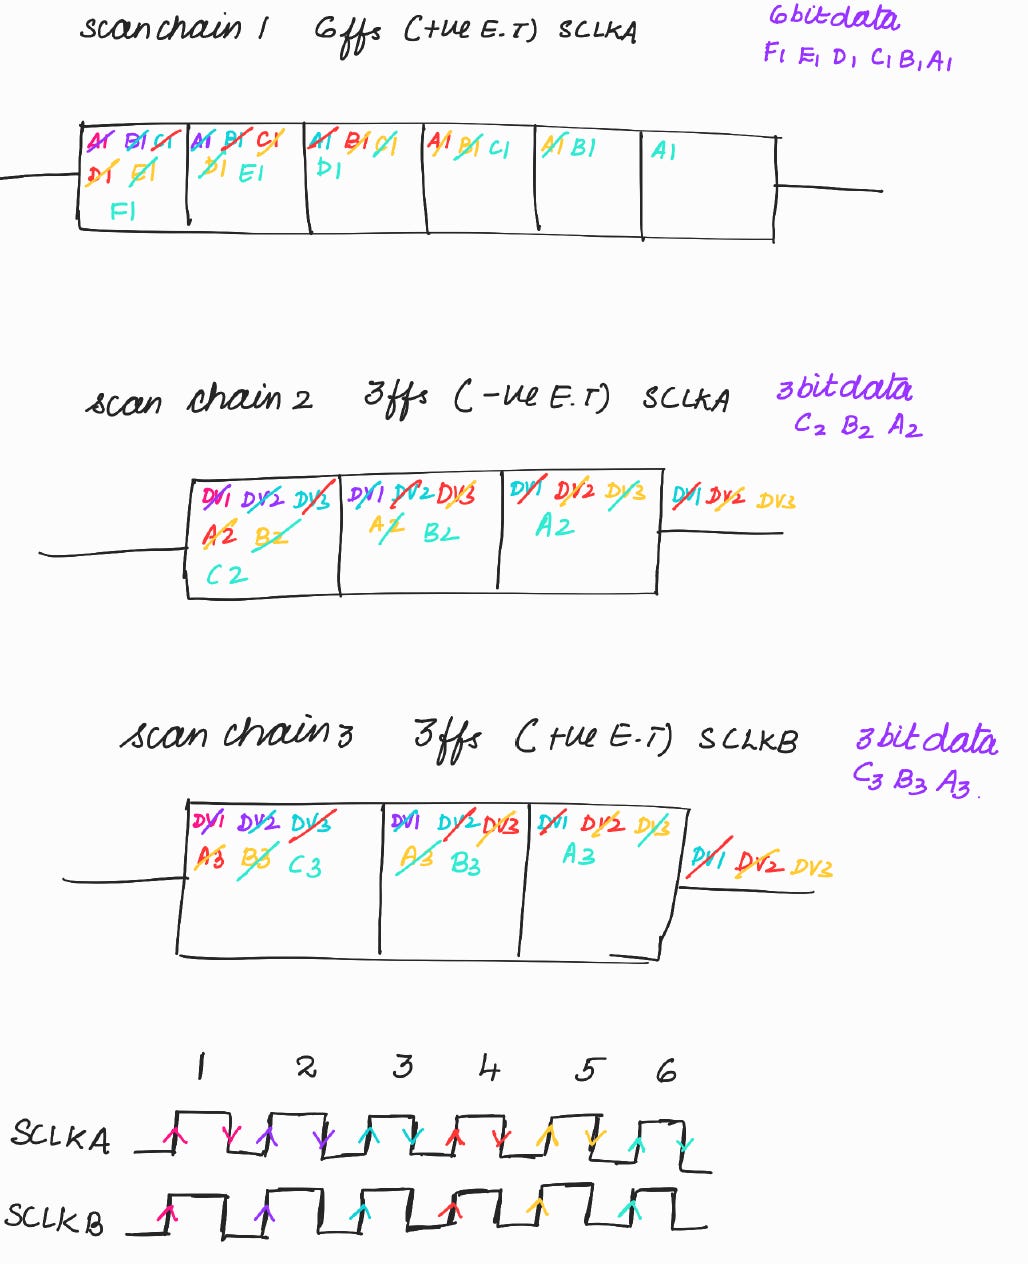 scan chain 1 6ffs (+ve E.T) SCLKA
6bit data
F1 E1 D1 C1 B1 A1
A1 B1 C1 A1 B1 C1 A1 B1 C1 A1 B1 C1 A1 B1 A1
D1 E1 D1 E1 D1
F1
scan chain 2 3ffs (-ve E.T) SCLKA
3bit data
C2 B2 A2
DV1 DV2 DV3 DV1 DV2 DV3 DV1 DV2 DV3 DV1 DV2 DV3
A2 B2 A2 B2 A2
C2
scan chain 3 3ffs (+ve E.T) SCLKB
3bit data
C3 B3 A3.
DV1 DV2 DV3 DV1 DV2 DV3 DV1 DV2 DV3
A3 B3 C3 A3 B3 A3 DV1 DV2 DV3
1 2 3 4 5 6
SCLKA
SCLKB